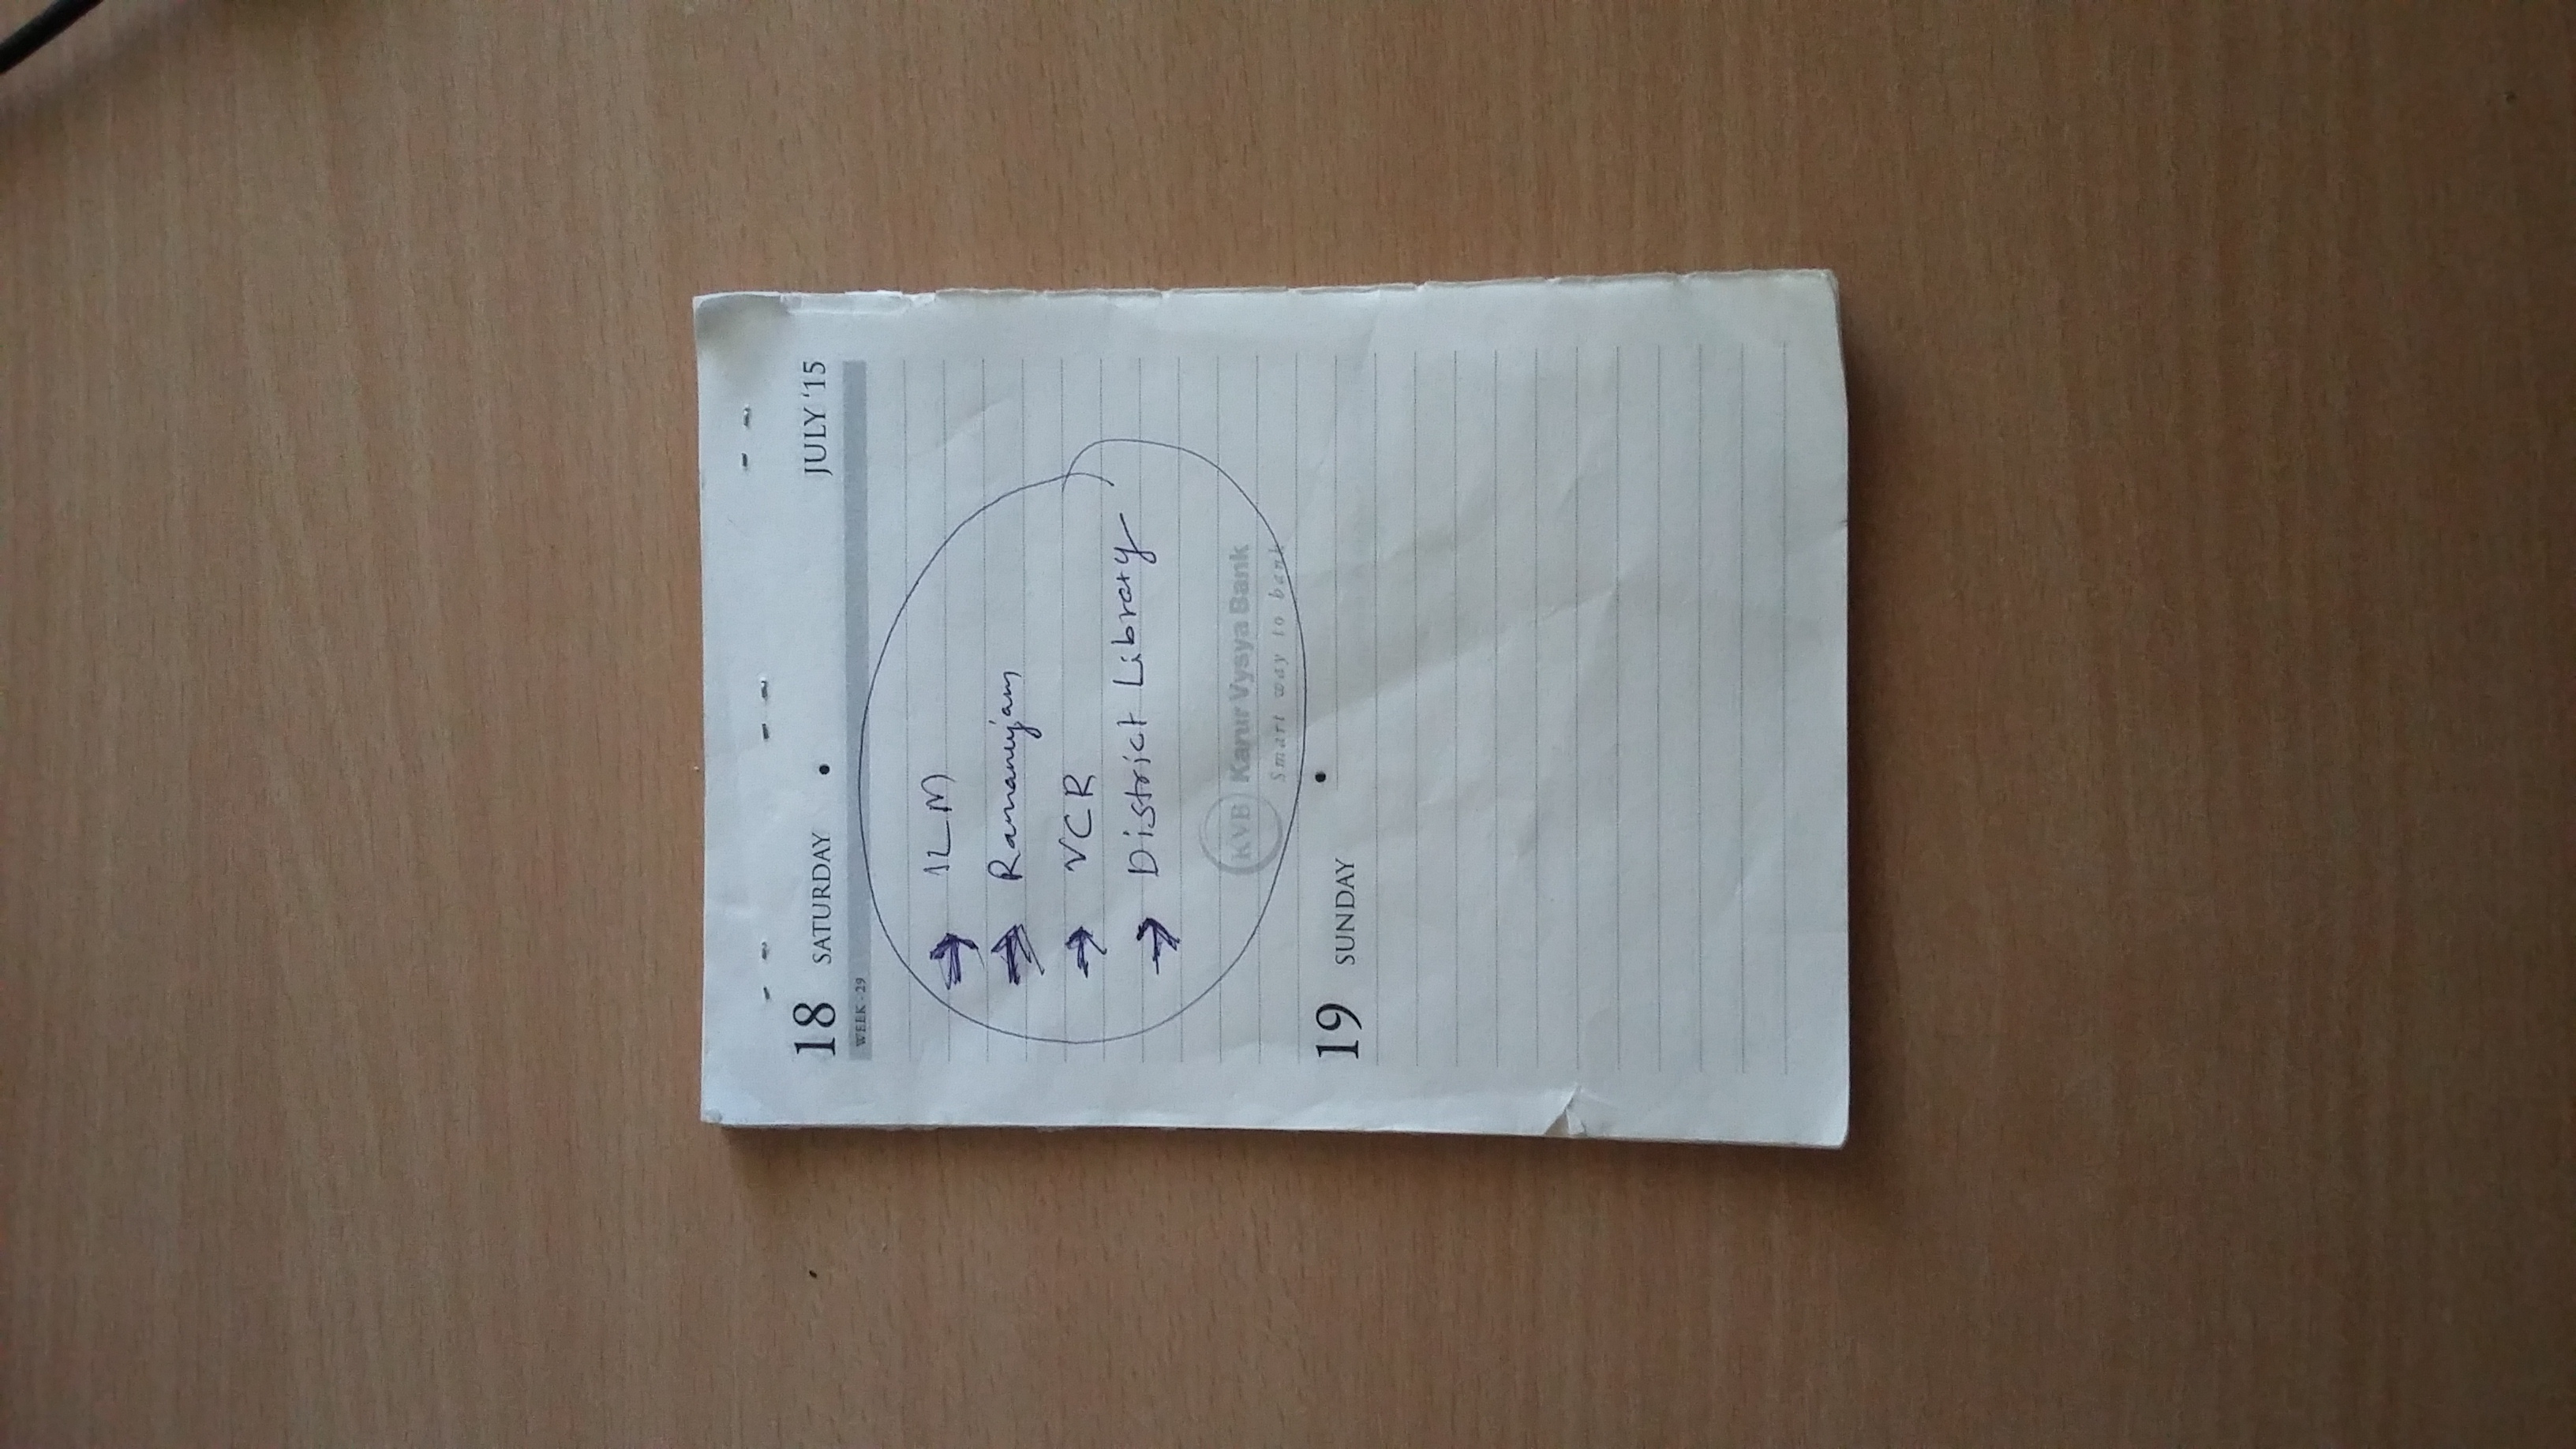 18 SATURDAY JULY '15
WEEK - 29
→ ILM
→ Ramanujam
→ VCR
→ District Library
KVB Karur Vysya Bank
Smart way to bank
19 SUNDAY